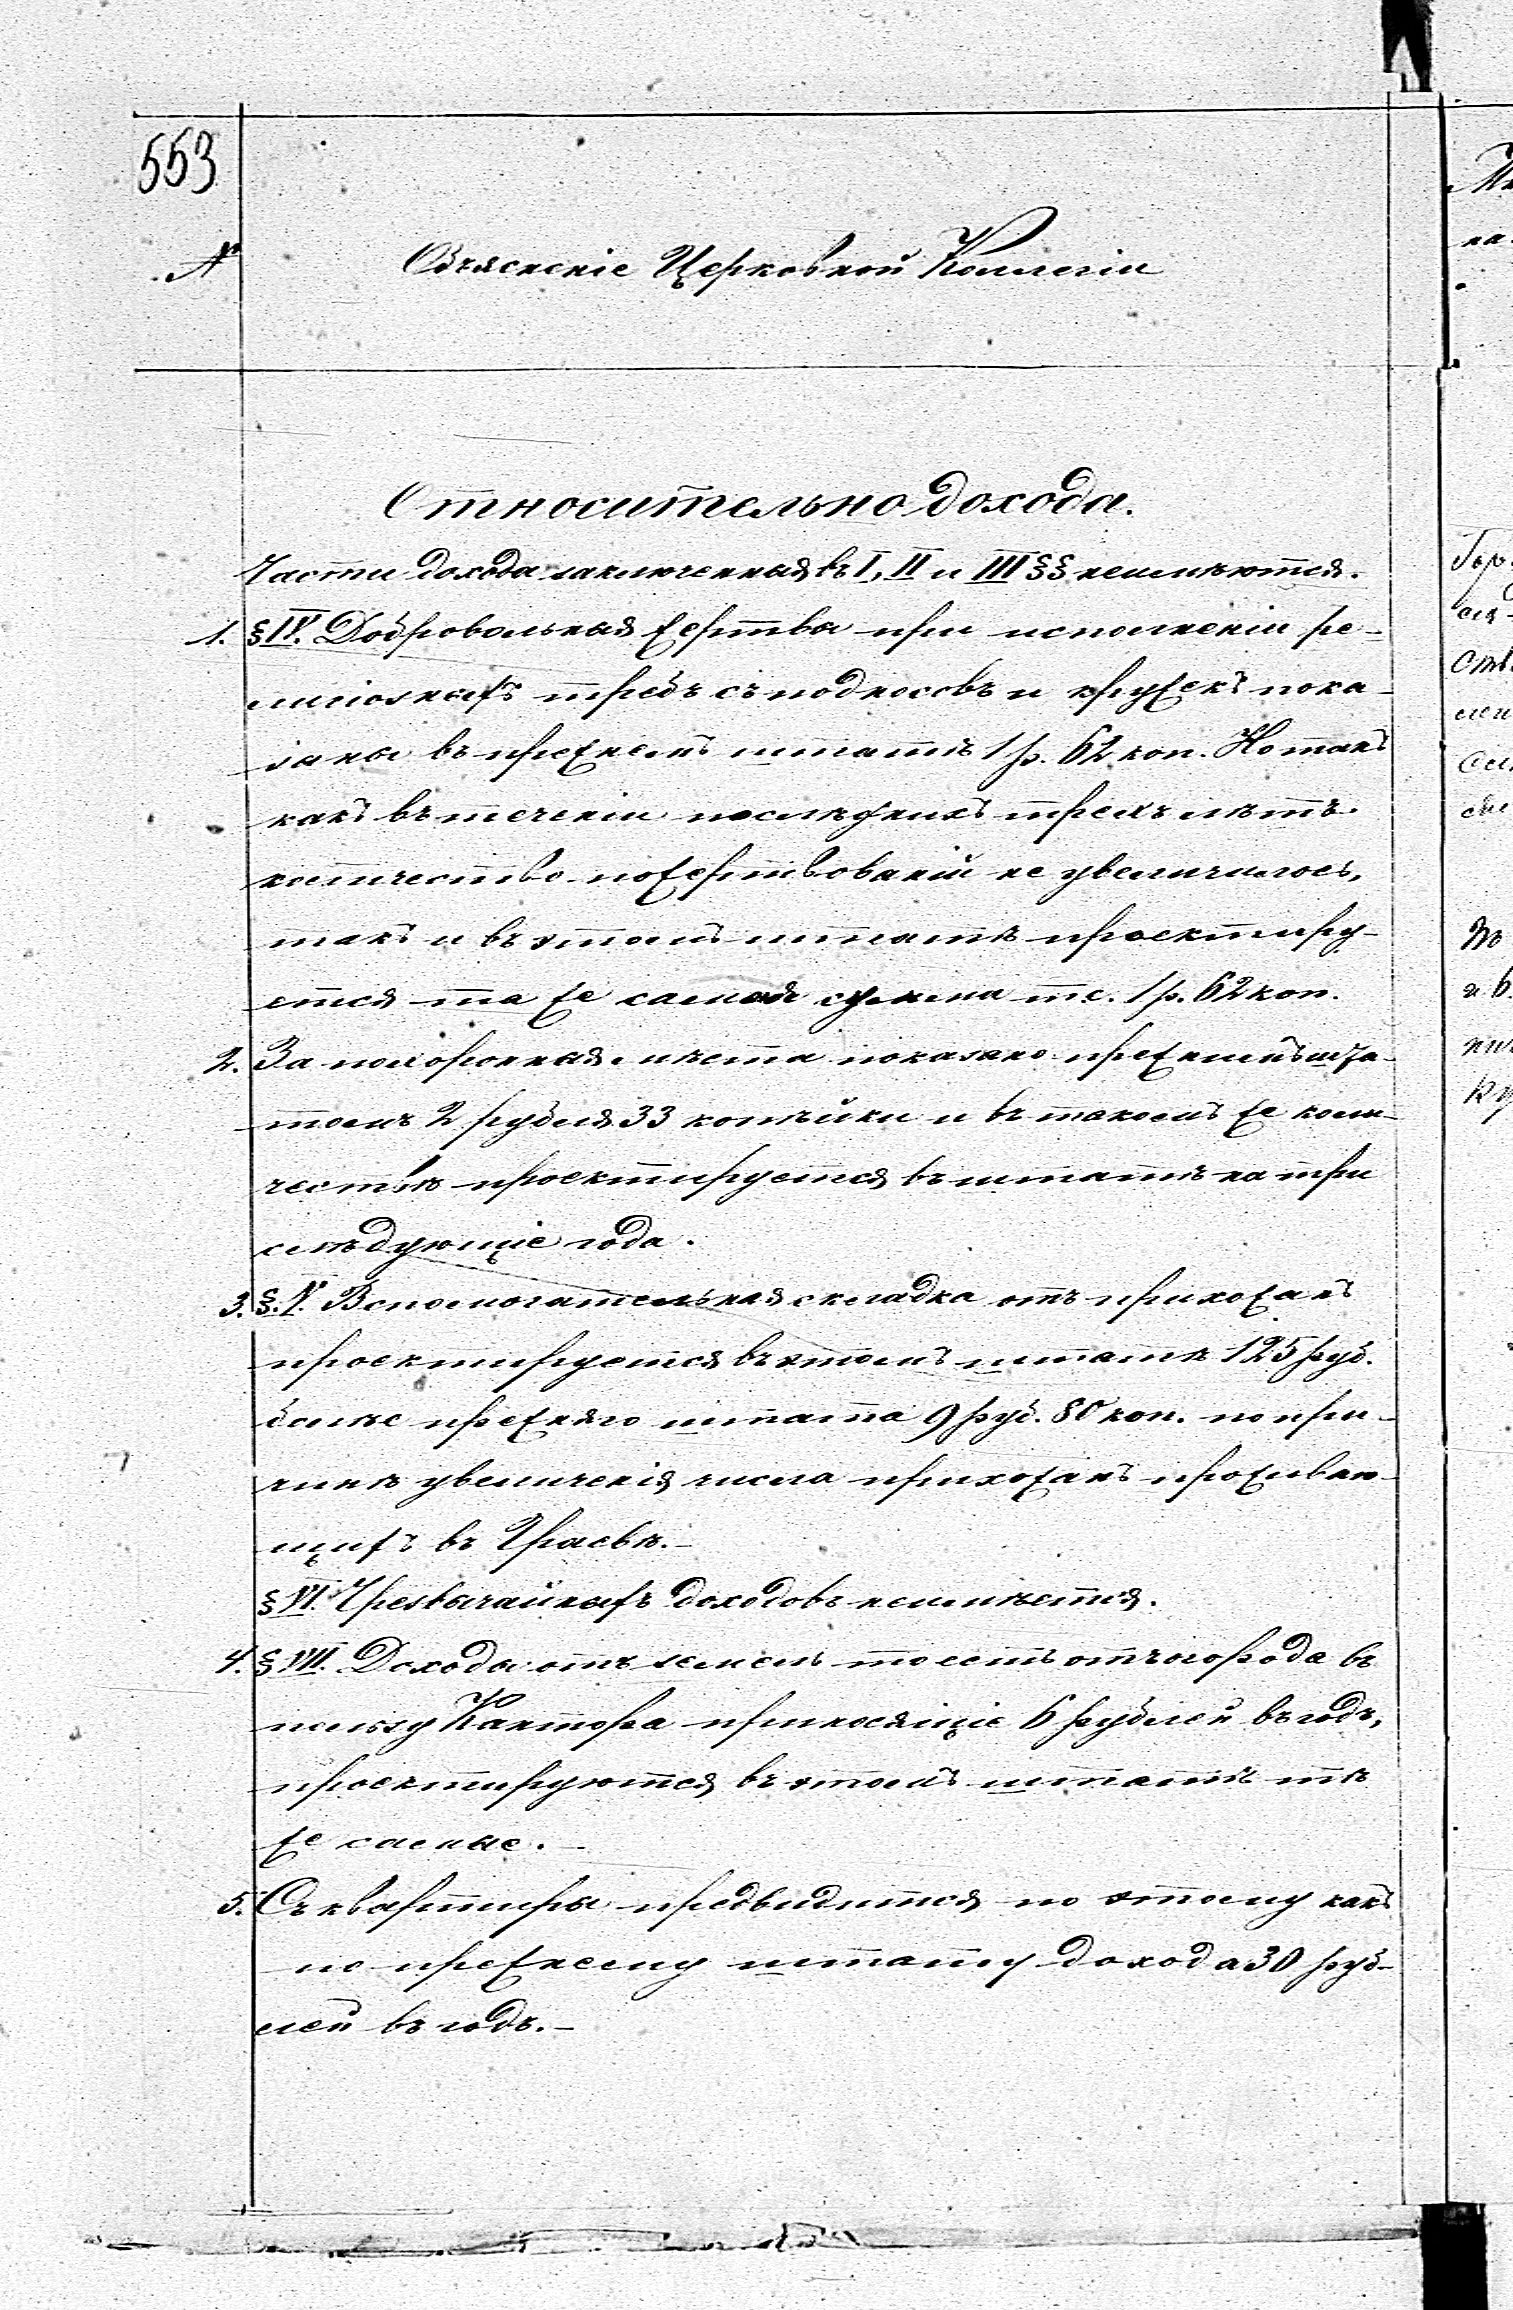 553
№
Объясненіе Церковной Коллегіи
Относительно дохода.
Части дохода заключенныя въ I, II и III §§ неимѣются.
1. § IV. Добровольныя жертвы при исполненіи ре-
лигіозныхъ требъ съ подносовъ и кружекъ пока-
заны въ прежнемъ штатѣ 1 р. 62 коп. Но такъ
какъ въ теченіи послѣднихъ трехъ лѣтъ
количество пожертвованій не увеличилось,
такъ и въ этомъ штатѣ проектиру-
ется та же самая сумма т.е. 1 р. 62 коп.
2. За похоронныя мѣста показано прежнимъ шта-
томъ 2 рубля 33 копѣйки и въ такомъ же коли-
чествѣ проектируется въ штатѣ на три
слѣдующіе года.
3. §. V. Вспомогательная складка отъ прихожанъ
проектируется въ этомъ штатѣ 125 руб.
болѣе прежняго штата 9 руб. 80 коп. по при-
чинѣ увеличенія числа прихожанъ проживаю-
щихъ въ Граевѣ.-
§ VI. Чрезвычайныхъ доходовъ неимѣется.
4. § VII. Доходы отъ земель то есть отъ огорода въ
пользу Кантора приносящіе 6 рублей въ годъ,
проектируются въ этомъ штатѣ тѣ
же самые.-
5. Съ квартиры предвидится по этому какъ
по прежнему штату дохода 30 руб-
лей въ годъ.-